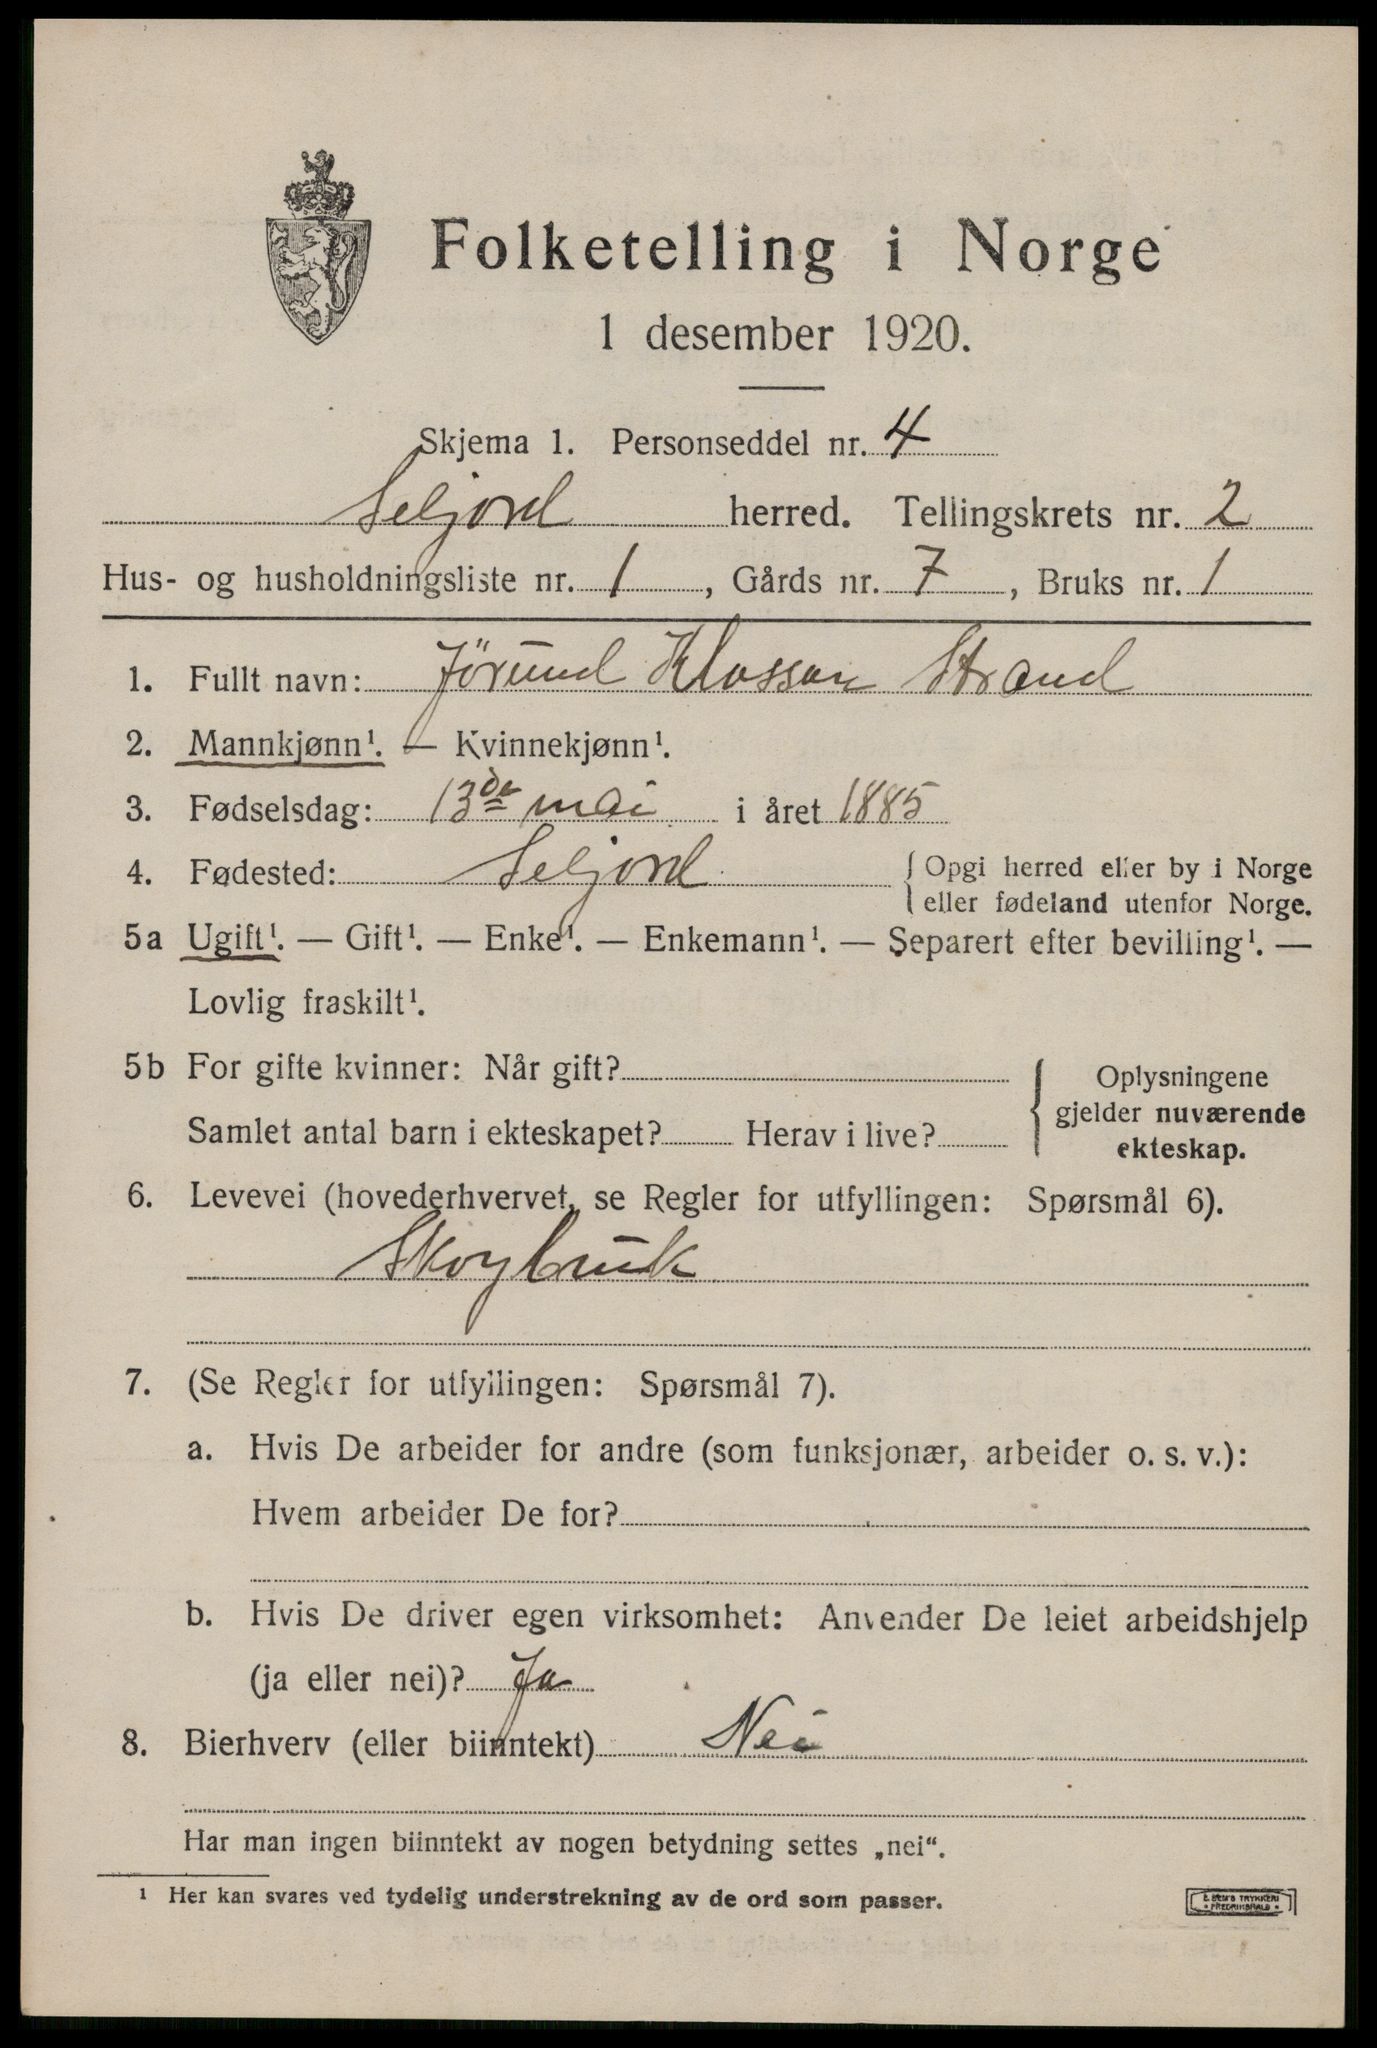 Folketelling i Norge
1 desember 1920.
Skjema 1. Personseddel nr. 4
Seljord herred. Tellingskrets nr. 2
Hus- og husholdningsliste nr. 1, Gårds nr. 7, Bruks nr. 1
1. Fullt navn: Jörund Klassan Strand
2. Mannkjønn¹. — Kvinnekjønn¹.
3. Fødselsdag: 13de mai i året 1885
4. Fødested: Seljord { Opgi herred eller by i Norge
eller fødeland utenfor Norge.
5a Ugift¹. — Gift¹. — Enke¹. — Enkemann¹. — Separert efter bevilling¹. —
Lovlig fraskilt¹.
5b For gifte kvinner: Når gift?
Samlet antal barn i ekteskapet? Herav i live?
{ Oplysningene
gjelder nuværende
ekteskap.
6. Levevei (hovederhvervet, se Regler for utfyllingen: Spørsmål 6).
Skogbruk
7. (Se Regler for utfyllingen: Spørsmål 7).
a. Hvis De arbeider for andre (som funksjonær, arbeider o. s. v.):
Hvem arbeider De for?
b. Hvis De driver egen virksomhet: Anvender De leiet arbeidshjelp
(ja eller nei)? Ja
8. Bierhverv (eller biinntekt) Nei
Har man ingen biinntekt av nogen betydning settes „nei“.
¹ Her kan svares ved tydelig understrekning av de ord som passer.
E. SEM'S TRYKKERI
FREDRIKSHALD